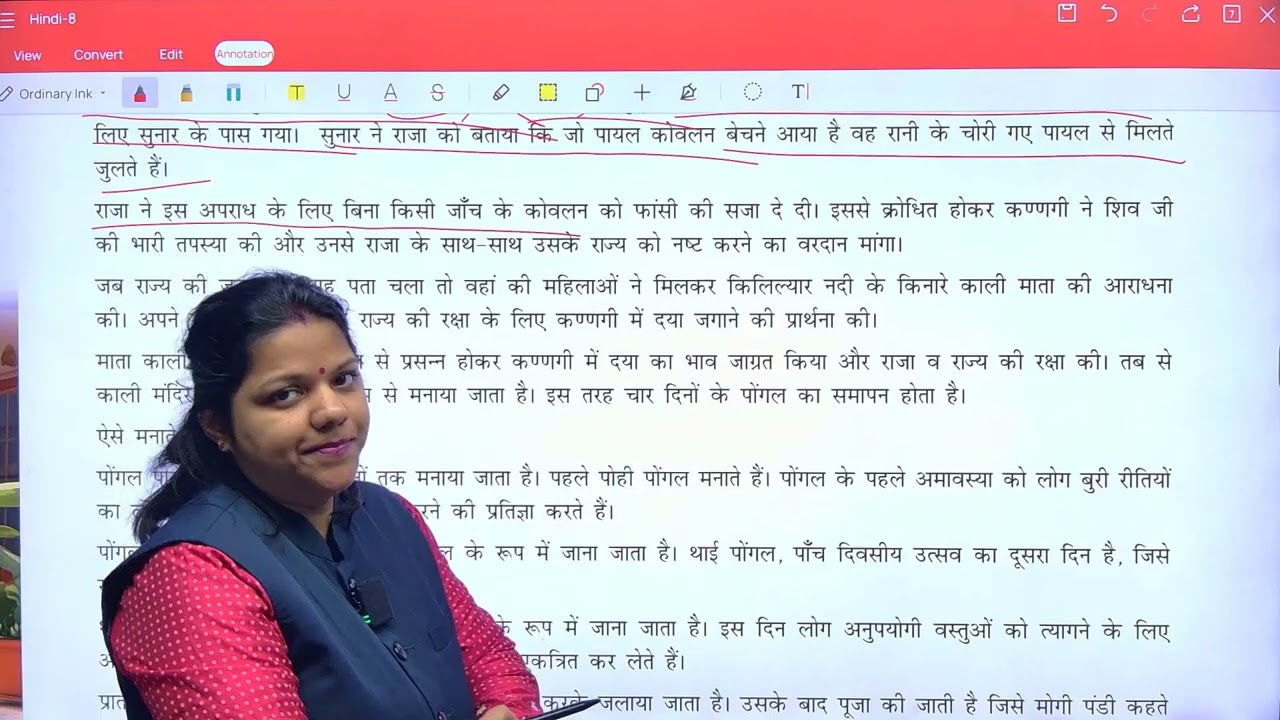 Hindi-8
7
View Convert Edit Annotation
Ordinary Ink T U A S T
लिए सुनार के पास गया। सुनार ने राजा को बताया कि जो पायल कोवलन बेचने आया है वह रानी के चोरी गए पायल से मिलते
जुलते हैं।
राजा ने इस अपराध के लिए बिना किसी जाँच के कोवलन को फांसी की सजा दे दी। इससे क्रोधित होकर कण्णगी ने शिव जी
की भारी तपस्या की और उनसे राजा के साथ-साथ उसके राज्य को नष्ट करने का वरदान मांगा।
जब राज्य की पता चला तो वहां की महिलाओं ने मिलकर किलिल्यार नदी के किनारे काली माता की आराधना
की। अपने राज्य की रक्षा के लिए कण्णगी में दया जगाने की प्रार्थना की।
माता काली से प्रसन्न होकर कण्णगी में दया का भाव जाग्रत किया और राजा व राज्य की रक्षा की। तब से
काली से मनाया जाता है। इस तरह चार दिनों के पोंगल का समापन होता है।
ऐसे
पोंगल तक मनाया जाता है। पहले पोही पोंगल मनाते हैं। पोंगल के पहले अमावस्या को लोग बुरी रीतियों
का की प्रतिज्ञा करते हैं।
के रूप में जाना जाता है। थाई पोंगल, पाँच दिवसीय उत्सव का दूसरा दिन है, जिसे
के रूप में जाना जाता है। इस दिन लोग अनुपयोगी वस्तुओं को त्यागने के लिए
कर लेते हैं।
करके जलाया जाता है। उसके बाद पूजा की जाती है जिसे मोगी पंडी कहते